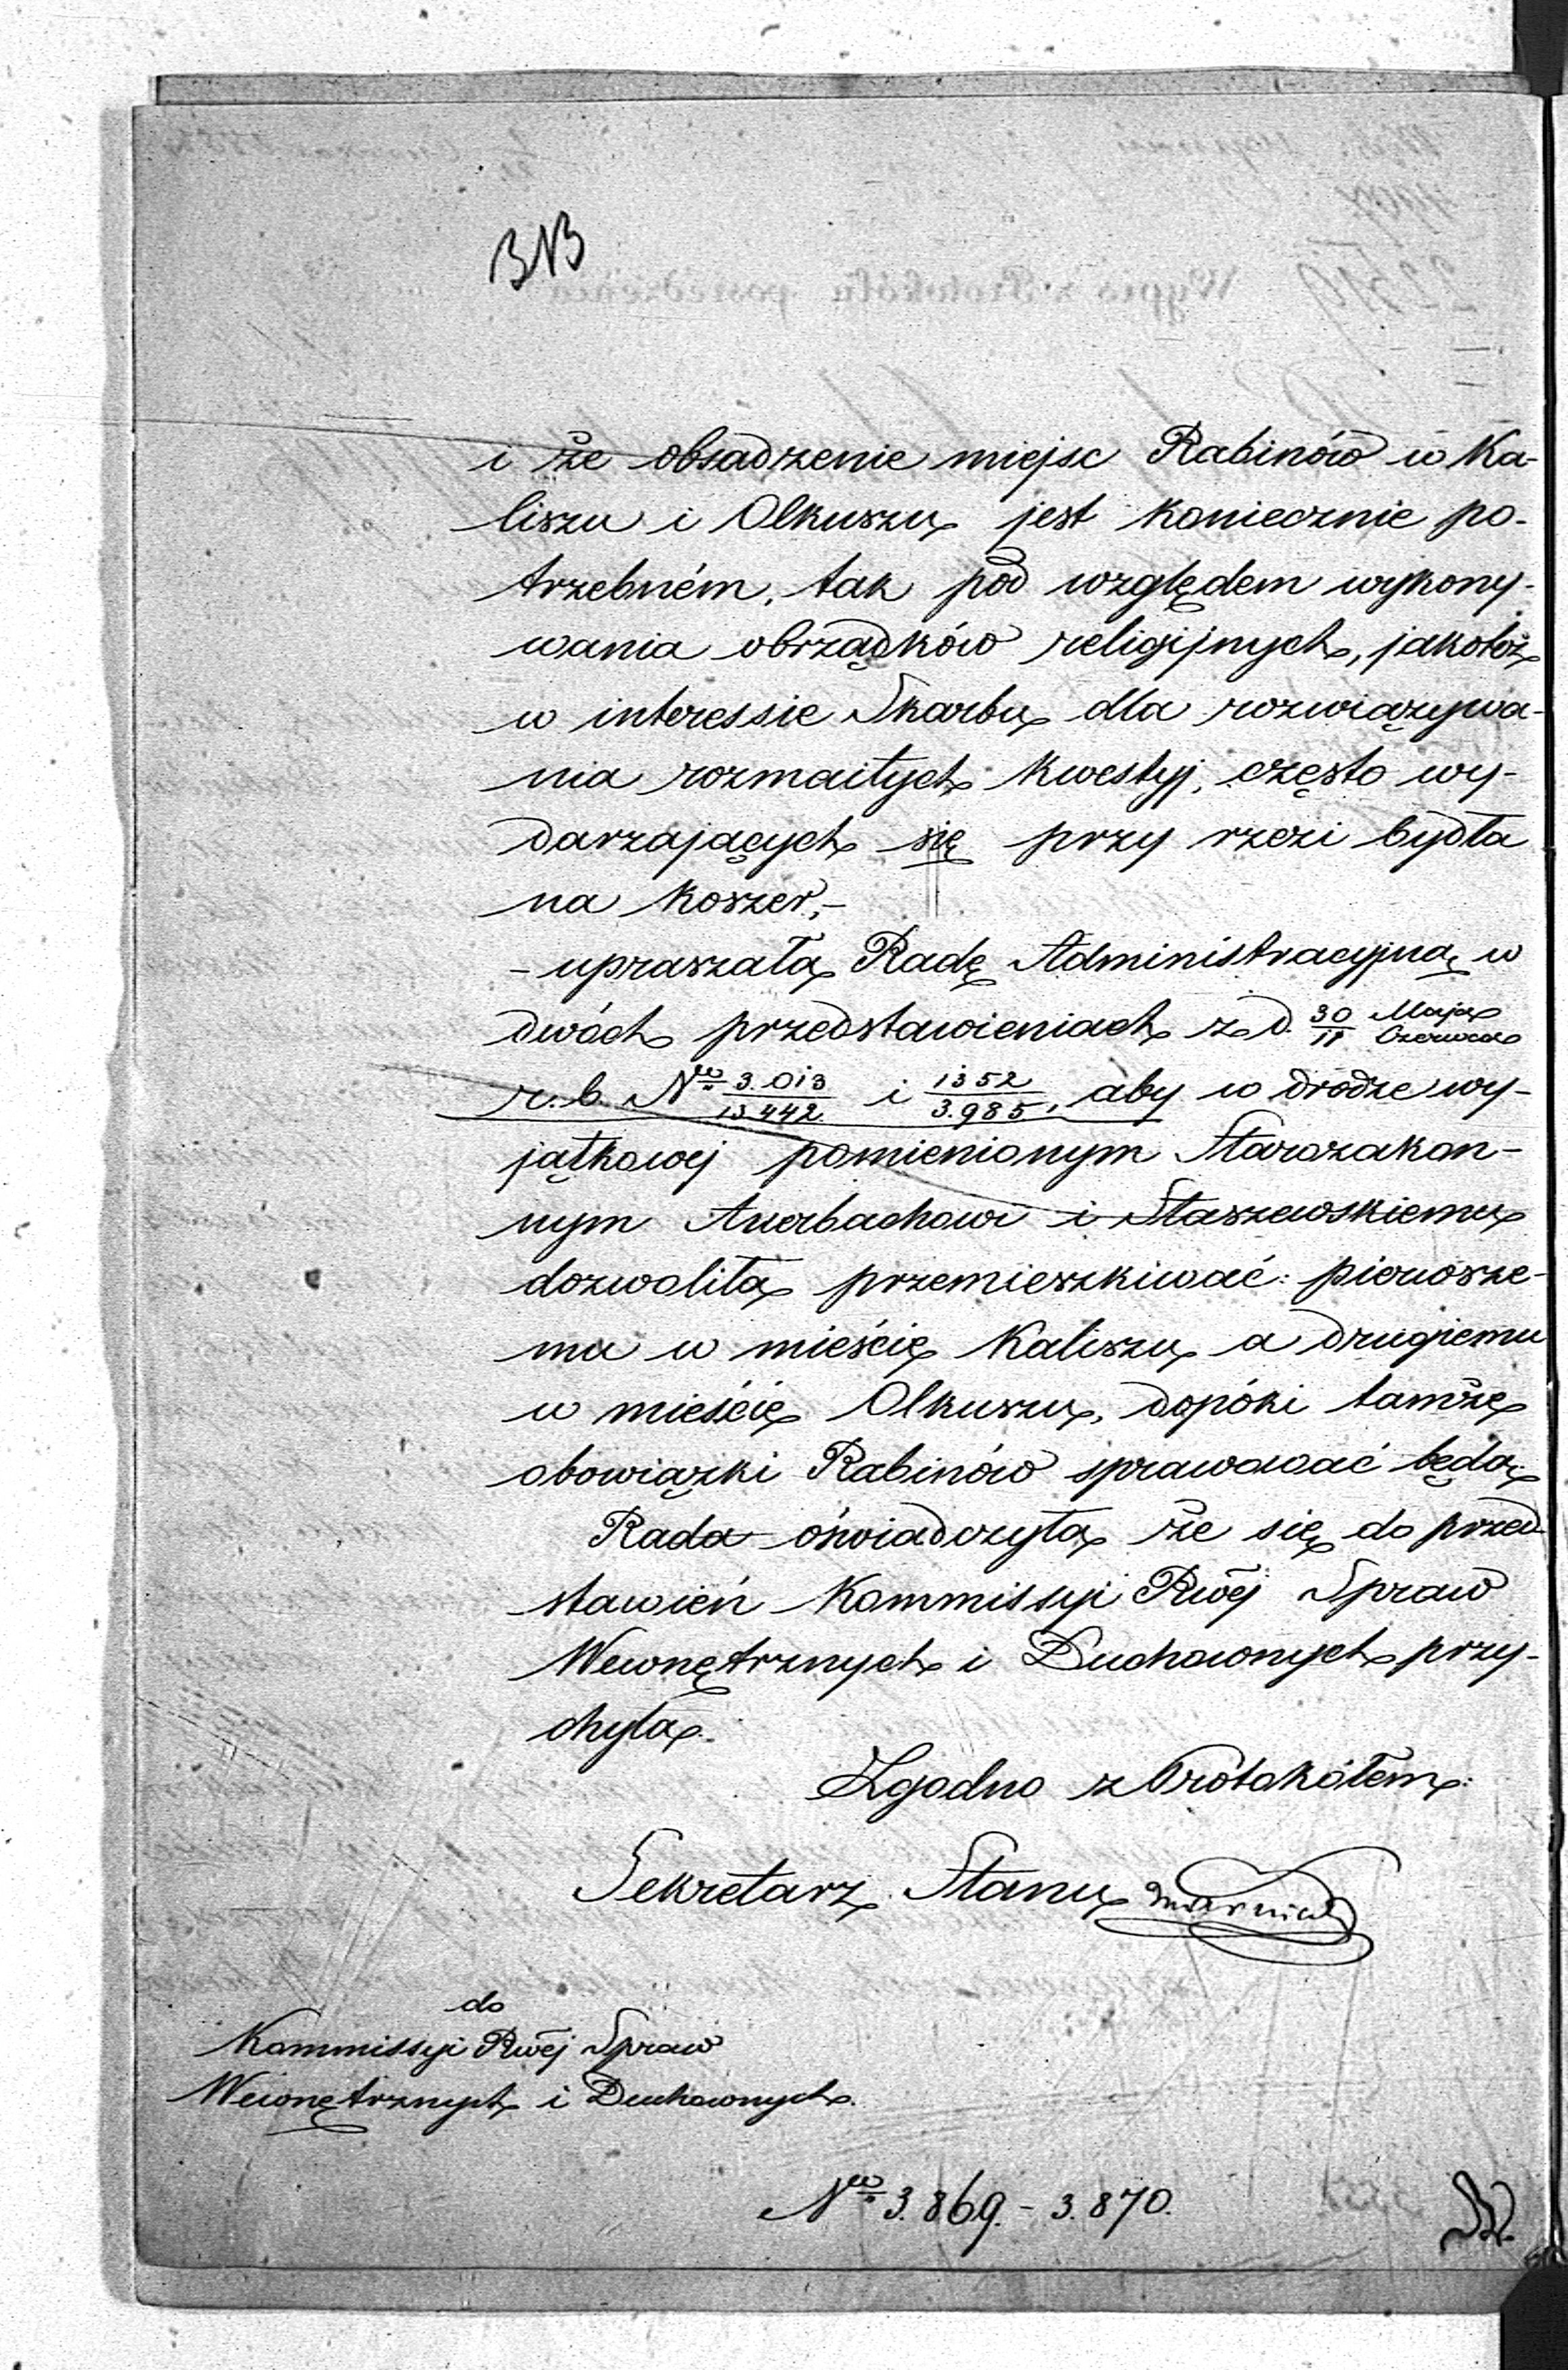 i że obsadzenie miejsc Rabinów w Ka-
liszu i Olkuszu jest koniecznie po-
trzebném, tak pod względem wykony-
wania obrządków religijnych, jakoteż
w interessie Skarbu dla rozwiązywa-
nia rozmaitych kwestyj, często wy-
darzających się przy rzezi bydła
na koszer,-
- upraszała Radę Administracyjną w
dwóch przedstawieniach z d. 30/11 Maja/Czerwca
r. b. Nro 3.013/13442 i 1352/3.985, aby w drodze wy-
jątkowej pomienionym Starozakon-
nym Auerbachowi i Staszewskiemu
dozwoliła przemieszkiwać: pierwsze-
mu w mieście Kaliszu a drugiemu
w mieście Olkuszu, dopóki tamże
obowiązki Rabinów sprawować będą.
Rada oświadczyła że się do przed-
stawień Kommissyi Rwéj Spraw
Wewnętrznych i Duchownych przy-
chyla.
Zgodno z Protokółem:
Sekretarz Stanu
do
Kommissyi Rwéj Spraw
Wewnętrznych i Duchownych.
Nro 3.869.- 3.870.
Wypis z Protokółu posiedzenia